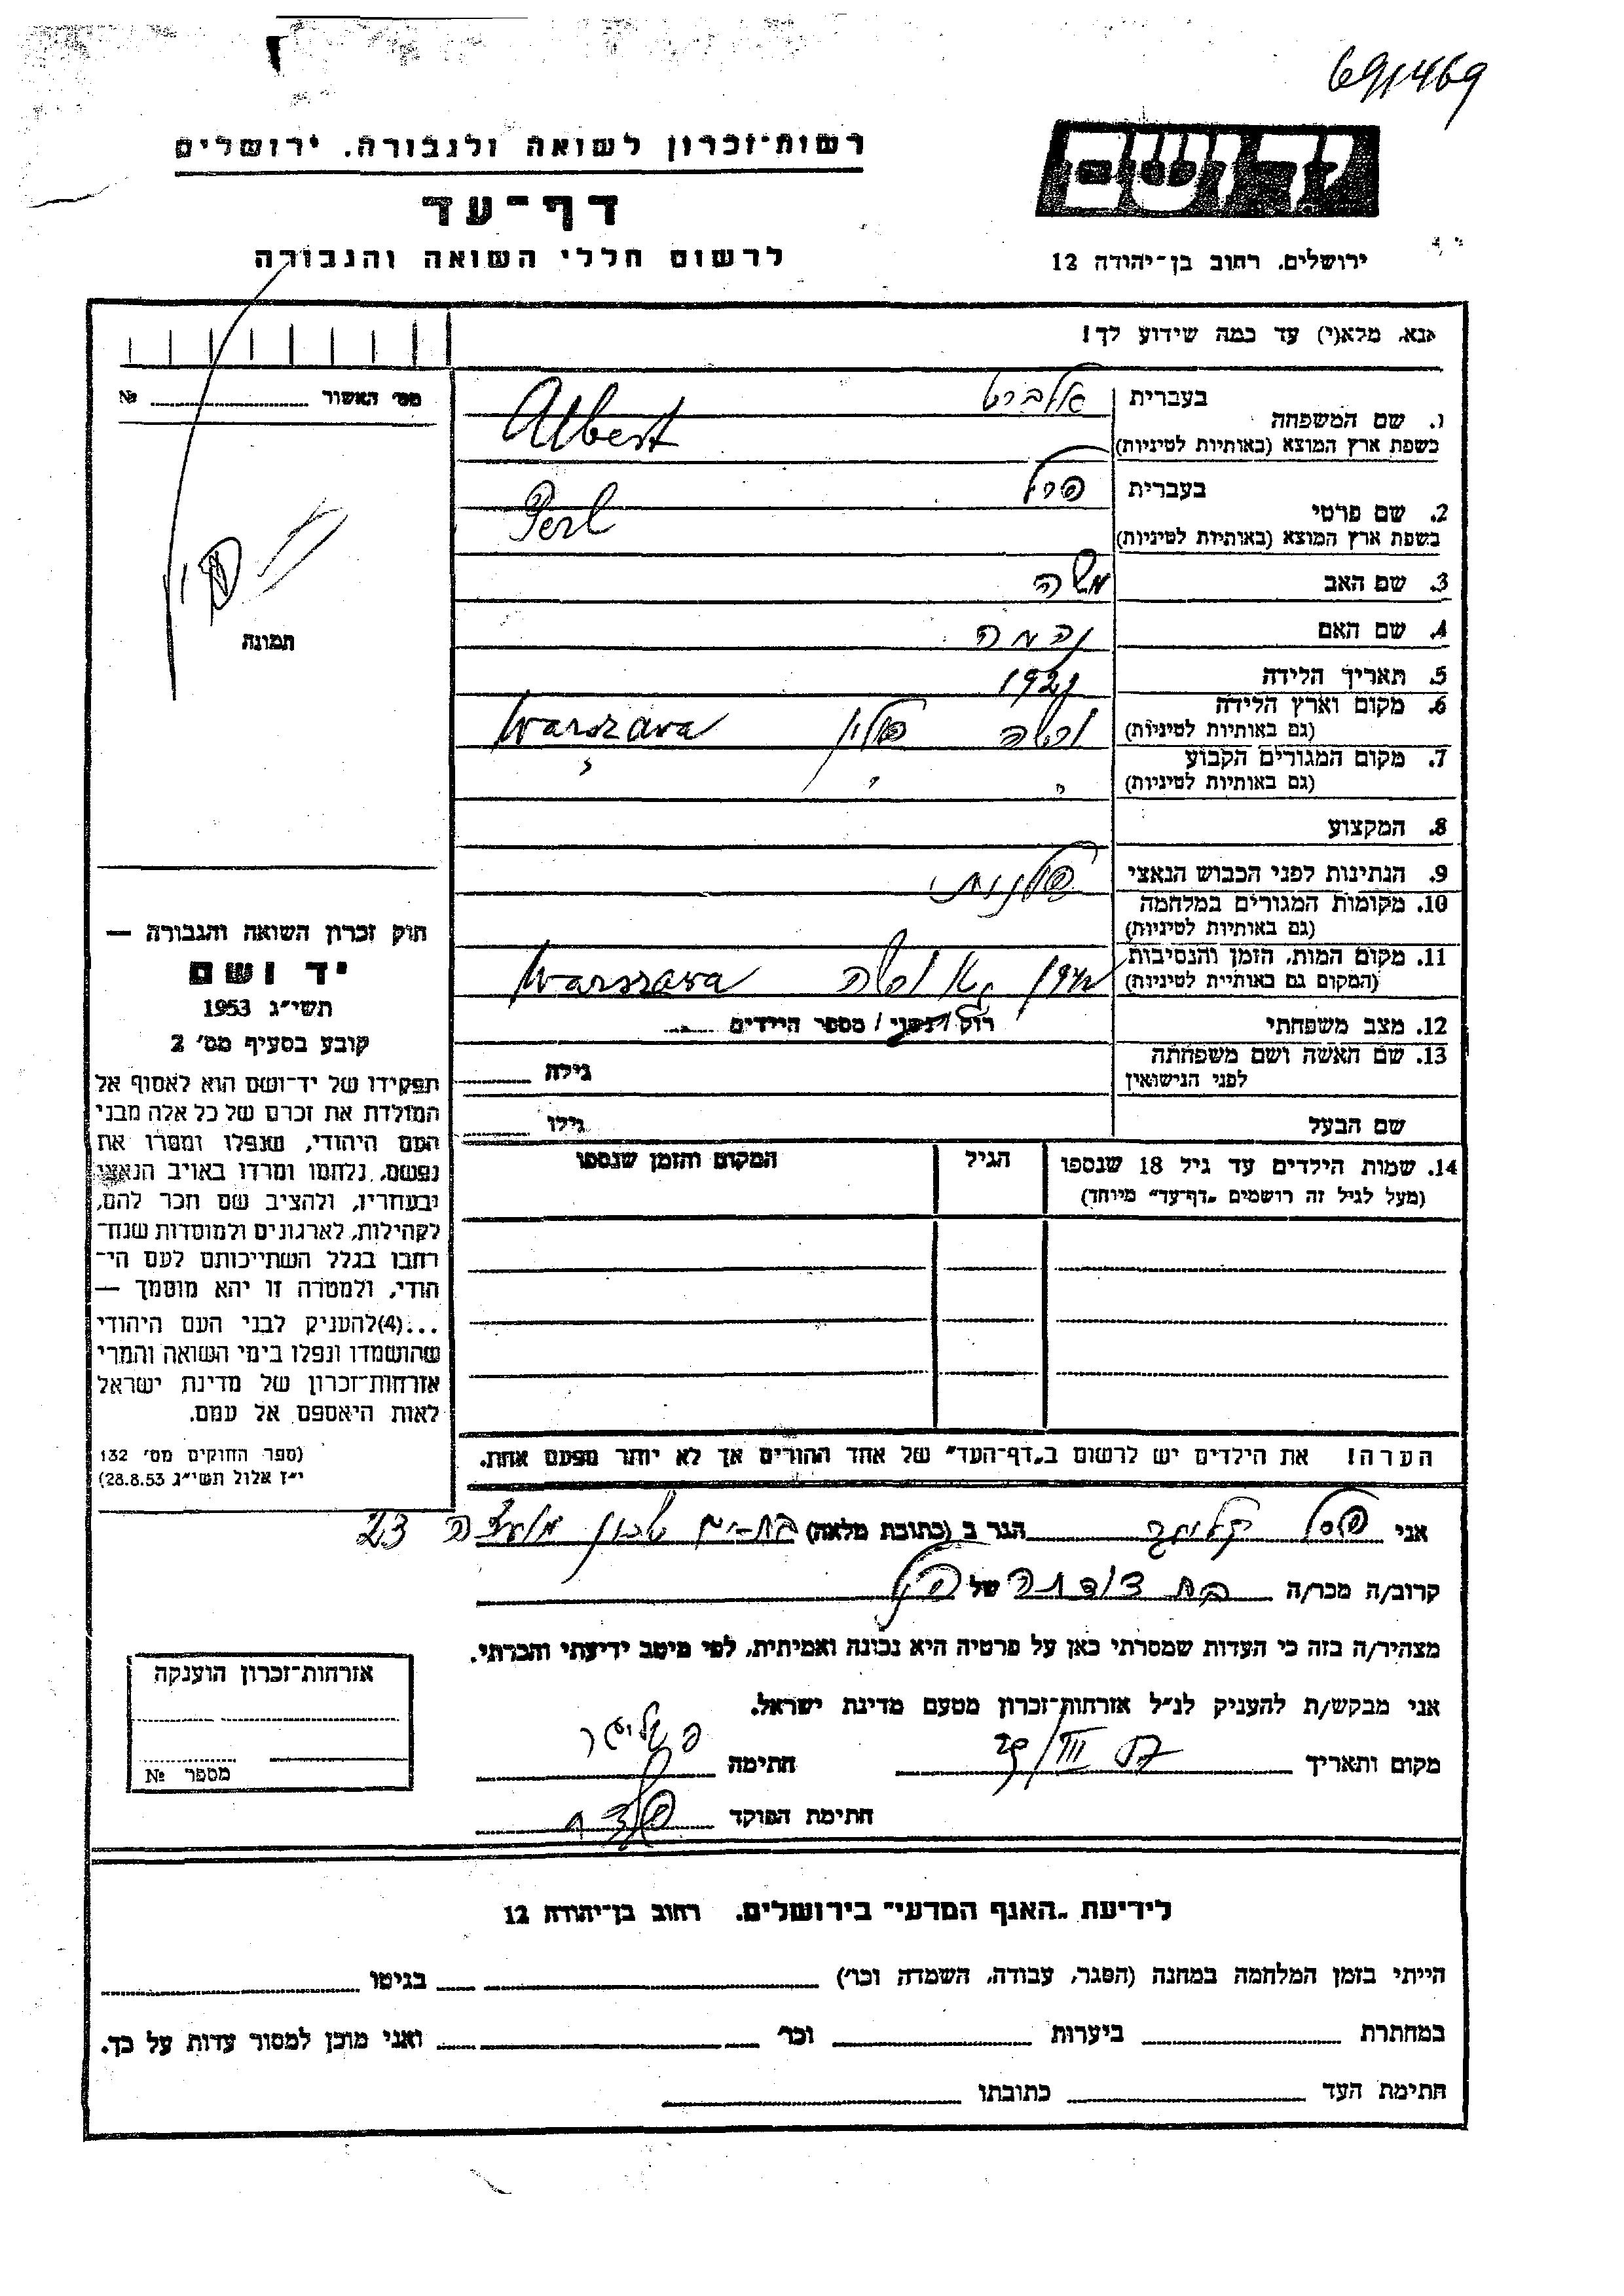 691469
רשות-זכרון לשואה ולגבורה. ירושלים
דף-עד
לרשום חללי השואה והגבורה
ירושלים. רחוב בן-יהודה 12
אנא, מלא(י) עד כמה שידוע לך!
מס׳ האשור №
1. שם המשפחה
בעברית אלברט
בשפת ארץ המוצא (באותיות לטיניות) Albert
2. שם פרטי
בעברית פרל
בשפת ארץ המוצא (באותיות לטיניות) Perl
3. שם האב משה
4. שם האם נחמה
5. תאריך הלידה 1921
6. מקום וארץ הלידה ורשה פולין Warszawa
(גם באותיות לטיניות)
7. מקום המגורים הקבוע " " "
(גם באותיות לטיניות)
8. המקצוע
9. הנתינות לפני הכבוש הנאצי פולנית
10. מקומות המגורים במלחמה
(גם באותיות לטיניות)
11. מקום המות, הזמן והנסיבות ורשה Warszawa
(המקום גם באותיות לטיניות)
12. מצב משפחתי רוק / נשוי / מספר הילדים
13. שם האשה ושם משפחתה
לפני הנישואין
גילה
שם הבעל גילו
14. שמות הילדים עד גיל 18 שנספו הגיל המקום והזמן שנספו
(מעל לגיל זה רושמים „דף-עד״ מיוחד)
הערה! את הילדים יש לרשום ב„דף-העד״ של אחד ההורים אך לא יותר מפעם אחת.
תמונה
חוק זכרון השואה והגבורה —
יד ושם
תשי״ג 1953
קובע בסעיף מס׳ 2
תפקידו של יד-ושם הוא לאסוף אל
המולדת את זכרם של כל אלה מבני
העם היהודי, שנפלו ומסרו את
נפשם, נלחמו ומרדו באויב הנאצי
ובעוזריו, ולהציב שם וזכר להם,
לקהילות, לארגונים ולמוסדות שנח־
רבו בגלל השתייכותם לעם הי־
הודי, ולמטרה זו יהא מוסמך —
...(4)להעניק לבני העם היהודי
שהושמדו ונפלו בימי השואה והמרי
אזרחות-זכרון של מדינת ישראל
לאות היאספם אל עמם.
(ספר החוקים מס׳ 132
י״ז אלול תשי״ג 28.8.53)
אני הגר ב (כתובת מלאה) בת-ים 23
קרוב/ה מכר/ה בת דודתה של פרל
מצהיר/ה בזה כי העדות שמסרתי כאן על פרטיה היא נכונה ואמיתית, לפי מיטב ידיעתי והכרתי.
אני מבקש/ת להעניק לנ״ל אזרחות-זכרון מטעם מדינת ישראל.
מקום ותאריך חתימה
חתימת הפוקד
אזרחות-זכרון הוענקה
מספר №
לידיעת „האגף המדעי״ בירושלים. רחוב בן-יהודה 12
הייתי בזמן המלחמה במחנה (הסגר, עבודה, השמדה וכו׳) בגיטו
במחתרת ביערות וכו׳ ואני מוכן למסור עדות על כך.
חתימת העד כתובתו